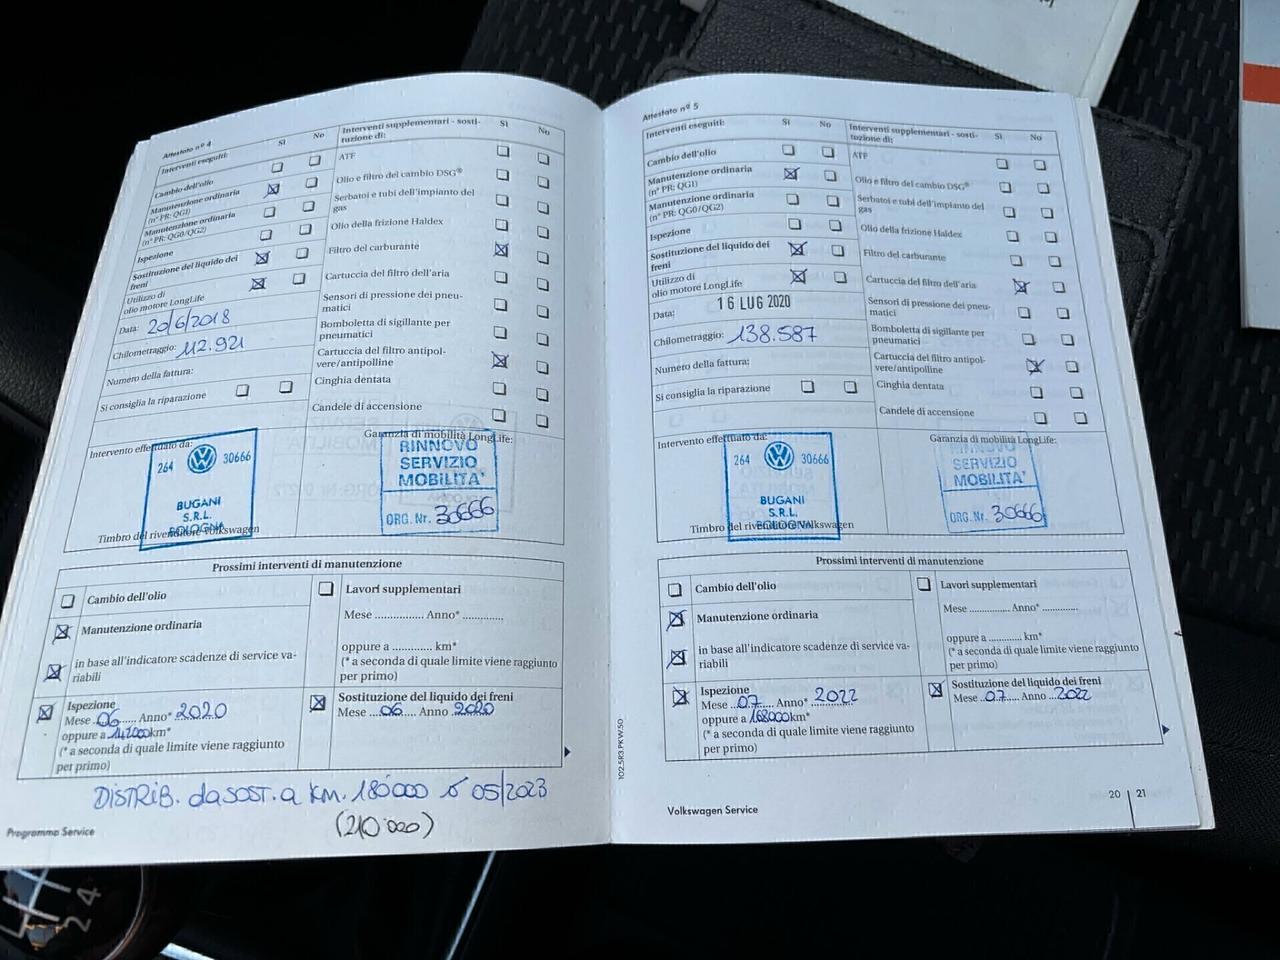 Attestato nº 4
Interventi eseguiti:
Sì
No
Cambio dell'olio
Manutenzione ordinaria
(nº PR: QG1)
Manutenzione ordinaria
(nº PR: QG0/QG2)
Ispezione
Sostituzione del liquido dei
freni
Utilizzo di
olio motore LongLife
Data: 20/6/2018
Chilometraggio: 112.921
Numero della fattura:
Si consiglia la riparazione
Interventi supplementari - sosti-
tuzione di:
Sì
No
ATF
Olio e filtro del cambio DSG®
Serbatoi e tubi dell'impianto del
gas
Olio della frizione Haldex
Filtro del carburante
Cartuccia del filtro dell'aria
Sensori di pressione dei pneu-
matici
Bomboletta di sigillante per
pneumatici
Cartuccia del filtro antipol-
vere/antipolline
Cinghia dentata
Candele di accensione
Intervento effettuato da:
264 30666
BUGANI
S.R.L.
BOLOGNA
Timbro del rivenditore Volkswagen
Garanzia di mobilità LongLife:
RINNOVO
SERVIZIO
MOBILITA'
ORG. Nr. 30666
Prossimi interventi di manutenzione
Cambio dell'olio
Manutenzione ordinaria
in base all'indicatore scadenze di service va-
riabili
Ispezione
Mese ..06...... Anno* 2020
oppure a 142000km*
(* a seconda di quale limite viene raggiunto
per primo)
Lavori supplementari
Mese ................ Anno* .............
oppure a ............ km*
(* a seconda di quale limite viene raggiunto
per primo)
Sostituzione del liquido dei freni
Mese ....06.... Anno 2020
DISTRIB. da SOST. a KM. 180000 o 05/2023
(210.000)
Programma Service
Attestato nº 5
Interventi eseguiti:
Sì
No
Cambio dell'olio
Manutenzione ordinaria
(nº PR: QG1)
Manutenzione ordinaria
(nº PR: QG0/QG2)
Ispezione
Sostituzione del liquido dei
freni
Utilizzo di
olio motore LongLife
Data: 16 LUG 2020
Chilometraggio: 138.587
Numero della fattura:
Si consiglia la riparazione
Interventi supplementari - sosti-
tuzione di:
Sì
No
ATF
Olio e filtro del cambio DSG®
Serbatoi e tubi dell'impianto del
gas
Olio della frizione Haldex
Filtro del carburante
Cartuccia del filtro dell'aria
Sensori di pressione dei pneu-
matici
Bomboletta di sigillante per
pneumatici
Cartuccia del filtro antipol-
vere/antipolline
Cinghia dentata
Candele di accensione
Intervento effettuato da:
264 30666
BUGANI
S.R.L.
BOLOGNA
Timbro del rivenditore Volkswagen
Garanzia di mobilità LongLife:
RINNOVO
SERVIZIO
MOBILITA'
ORG. Nr. 30666
Prossimi interventi di manutenzione
Cambio dell'olio
Manutenzione ordinaria
in base all'indicatore scadenze di service va-
riabili
Ispezione
Mese ...07...... Anno* 2022
oppure a 168000km*
(* a seconda di quale limite viene raggiunto
per primo)
Lavori supplementari
Mese ............. Anno* .............
oppure a ............ km*
(* a seconda di quale limite viene raggiunto
per primo)
Sostituzione del liquido dei freni
Mese ..07...... Anno ...2022
102.5R3.PKW.50
Volkswagen Service
20 21
2 4